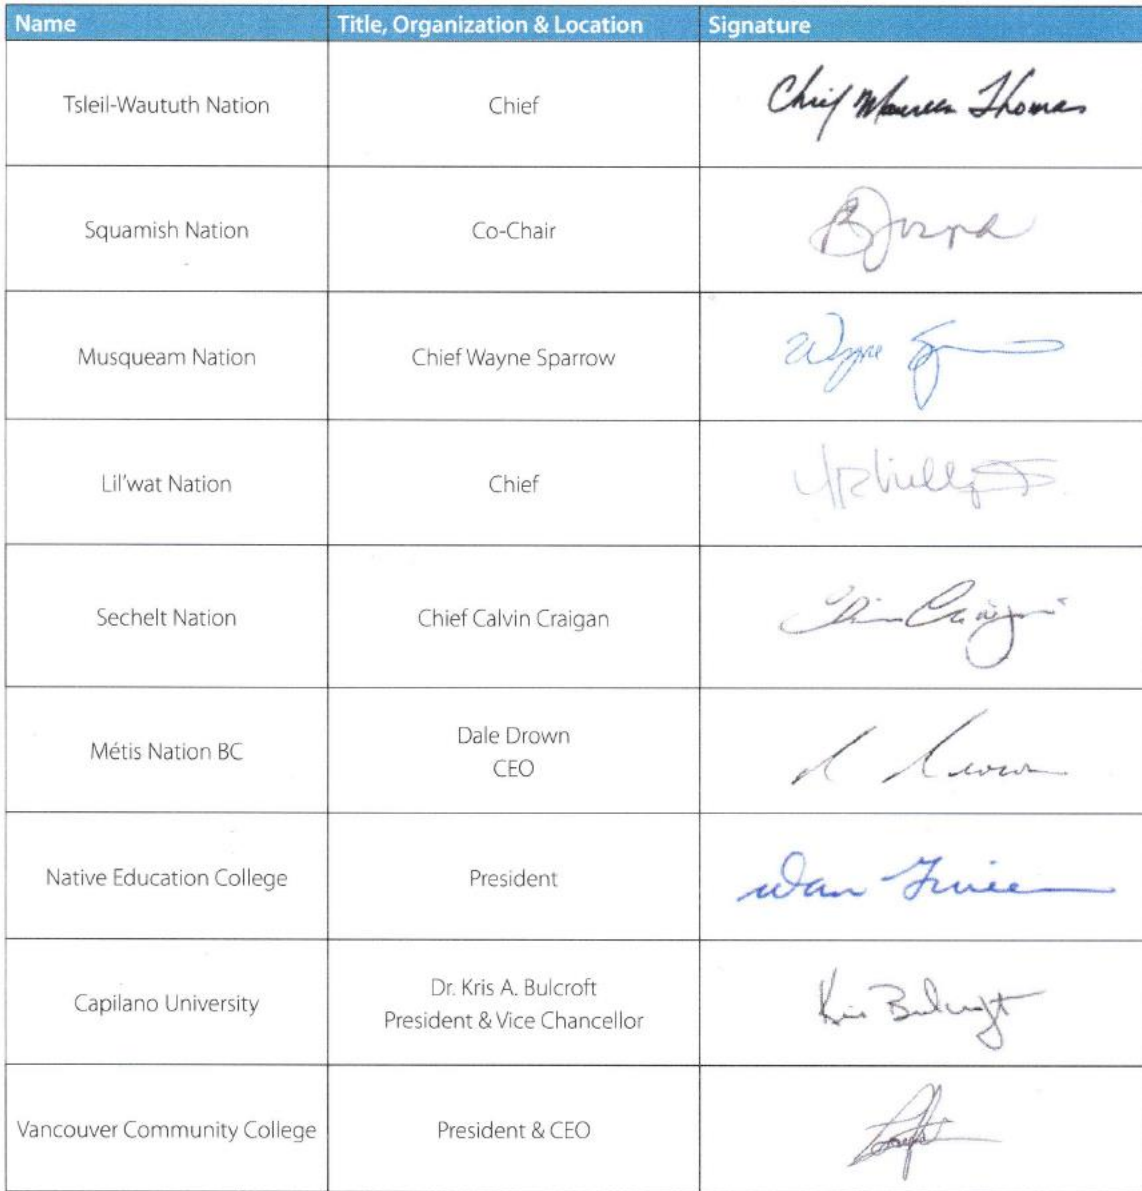 Name Title, Organization & Location Signature
Tsleil-Waututh Nation Chief Chief Maureen Thomas
Squamish Nation Co-Chair BJoseph
Musqueam Nation Chief Wayne Sparrow Wayne
Lil'wat Nation Chief
Sechelt Nation Chief Calvin Craigan Craigan
Métis Nation BC Dale Drown
CEO
Native Education College President Dan
Capilano University Dr. Kris A. Bulcroft
President & Vice Chancellor Kris Bulcroft
Vancouver Community College President & CEO